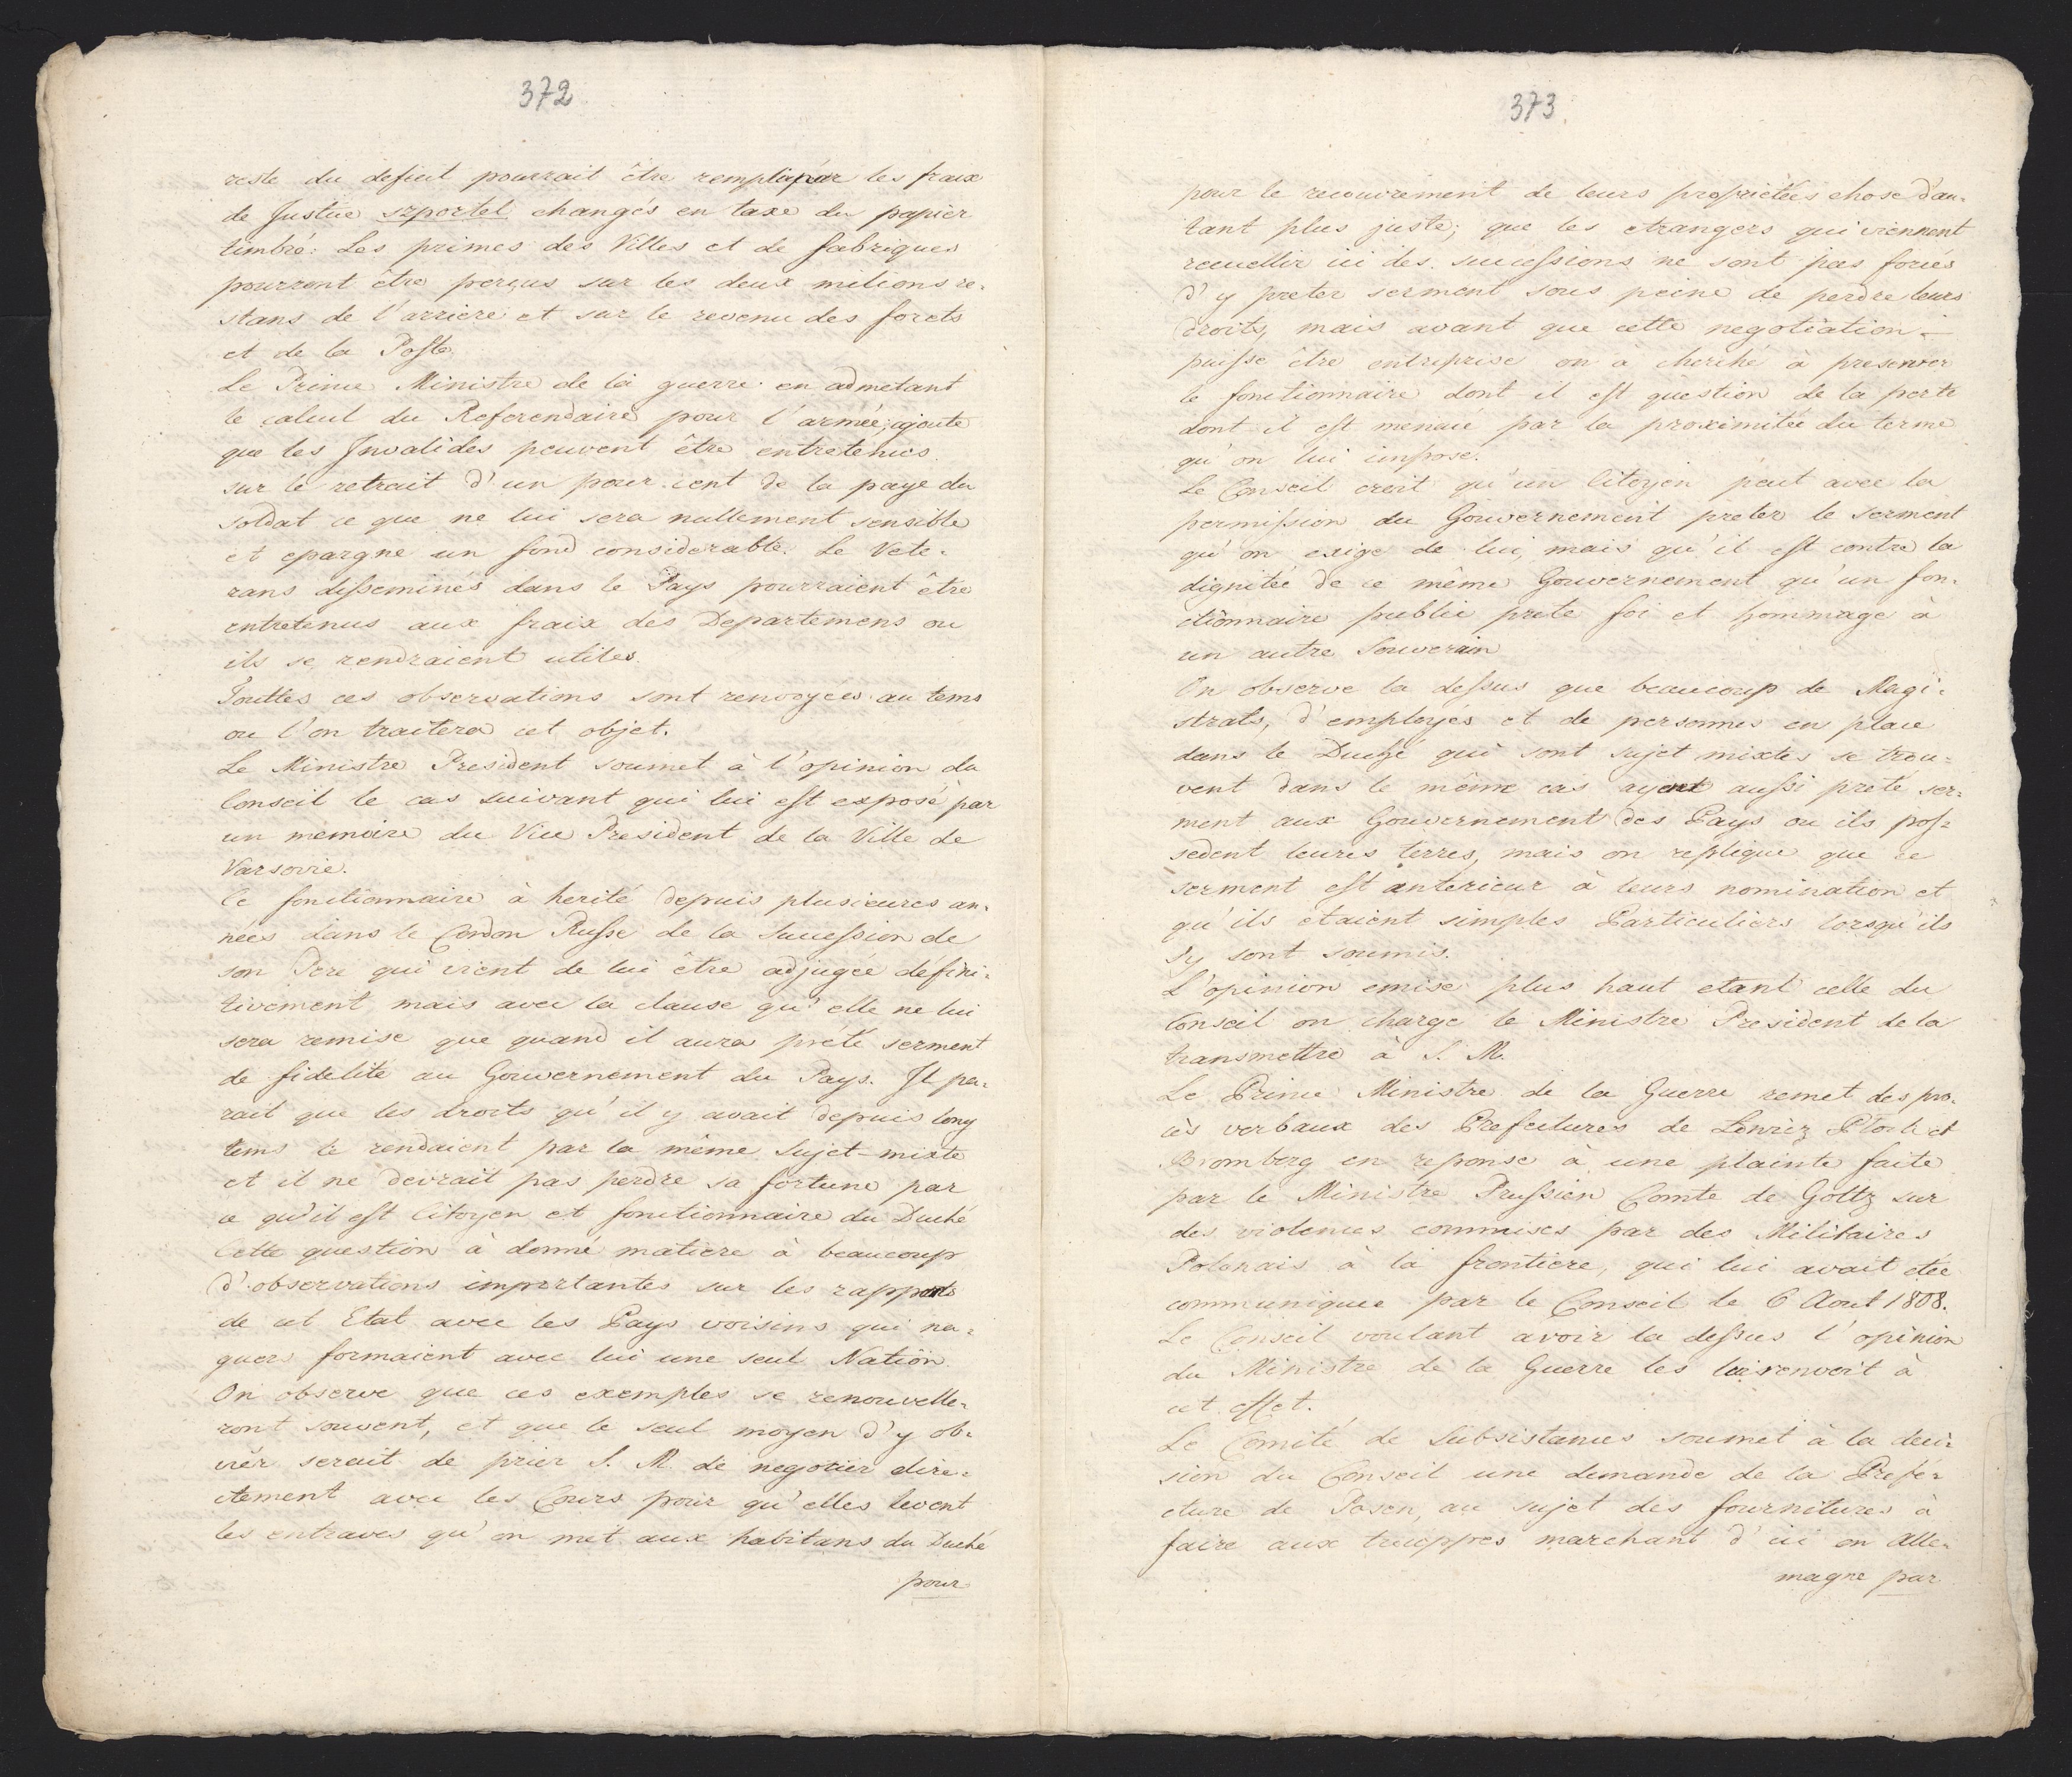 372
reste du deficit pourrait être rempli par les fraix
de Justice szportel changés en taxe du papier
timbré: Les primes des Villes et de fabriques
pourront être perçus sur les deux milions re-
stans de l'arriere et sur le revenu des forets
et de la Poste
Le Prince Ministre de la guerre en admetant
le calcul du Referendaire pour l'armée, ajoute
que les Invalides peuvent être entretenus
sur le retrait d'un pour cent de la paye du
soldat ce que ne lui sera nullement sensible
et epargne un fond considerable. Le Vete-
rans disseminés dans le Pays pourraient être
entretenus aux fraix des Departemens ou
ils se rendraient utiles.
Touttes ces observations sont renvoyees au tems
ou l'on traitera cet objet.
Le Ministre President soumet à l'opinion du
Conseil le cas suivant qui lui est exposé par
un memoire du Vice President de la Ville de
Varsovie.
Ce fonctionnaire à herité depuis plusieures an-
nées dans le Cordon Russe de la Succession de
son Pere qui vient de lui être adjugée défini-
tivement, mais avec la clause qu'elle ne lui
sera remise que quand il aura prété serment
de fidelité au Gouvernement du Pays. Il pa-
rait que les droits qu'il y avait depuis long
tems le rendaient par la même Sujet-mixte
et il ne devrait pas perdre sa fortune par
ce qu'il est Citoyen et fonctionnaire du Duché
Cette question à donné matiere à beaucoup
d'observations importantes sur les rapports
de cet Etat avec les Pays voisins qui na-
guers formaient avec lui une seul Nation.
On observe que ces exemples se renouvelle-
ront souvent, et que le seul moyen d'y ob-
vier serait de prier S. M. de negocier dire-
ctement avec les Cours pour qu'elles levent
les entraves qu'on met aux habitans du Duché
pour
373.
pour le recouvrement de leurs proprietées chose d'au-
tant plus juste; que les etrangers qui viennent
recuellir ici des successions ne sont pas forcés
d'y preter serment sous peine de perdre leurs
droits, mais avant que cette negotiation -
puisse être entreprise on à cherché à preserver
le fonctionnaire dont il est question de la perte
dont il est menacé par la proximitée du terme
qu'on lui impose.
Le Conseil croit qu'un Citoyen peut avec la
permission du Gouvernement preter le serment
qu'on exige de lui, mais qu'il est contre la
dignitée de ce même Gouvernement qu'un fon-
ctionnaire public prete foi et hommage à
un autre Souverain
On observe la dessus que beaucoup de Magi-
strats, d'employés et de personnes en place
dans le Duché qui sont sujet mixtes se trou-
vent dans le même cas ayent aussi preté ser-
ment aux Gouvernement des Pays ou ils pos-
sedent leures terres, mais on replique que ce
serment est anterieur à leurs nomination et
qu'ils étaient simples Particuliers lorsqu'ils
s'y sont soumis.
L'opinion emise plus haut etant celle du
Conseil on charge le Ministre President de la
transmettre à S. M.
Le Prince Ministre de la Guerre remet des pro-
cès verbaux des Prefectures de Lowicz Plock et
Bromberg en reponse à une plainte faite
par le Ministre Prussien Comte de Goltz sur
des violences commises par des Militaires
Polonais à la frontiere, qui lui avait etée
communiquee par le Conseil le 6 Aout 1808.
Le Conseil voulant avoir la dessus l'opinion
du Ministre de la Guerre les lui renvoit à
cet effet.
Le Comité de Subsistances soumet à la deci-
sion du Conseil une demande de la Prefe-
cture de Posen, au sujet des fournitures à
faire aux trouppes marchant d'ici en Alle-
magne par